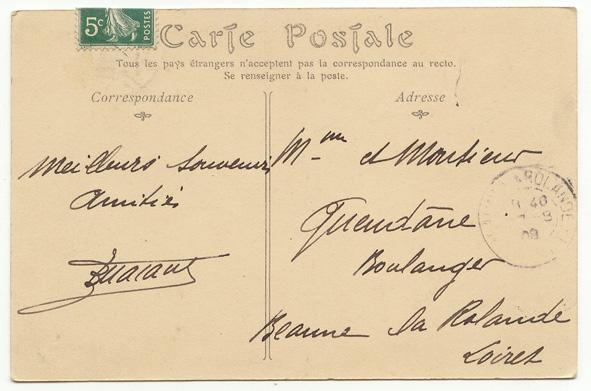 5c
POSTES
Carte Postale
Tous les pays étrangers n'acceptent pas la correspondance au recto.
Se renseigner à la poste.
Correspondance
Meilleurs souvenirs
Amitiés
Adresse
Mme et Monsieur
Boulanger
Beaune la Rolande
Loiret
ROLANDE
40
09